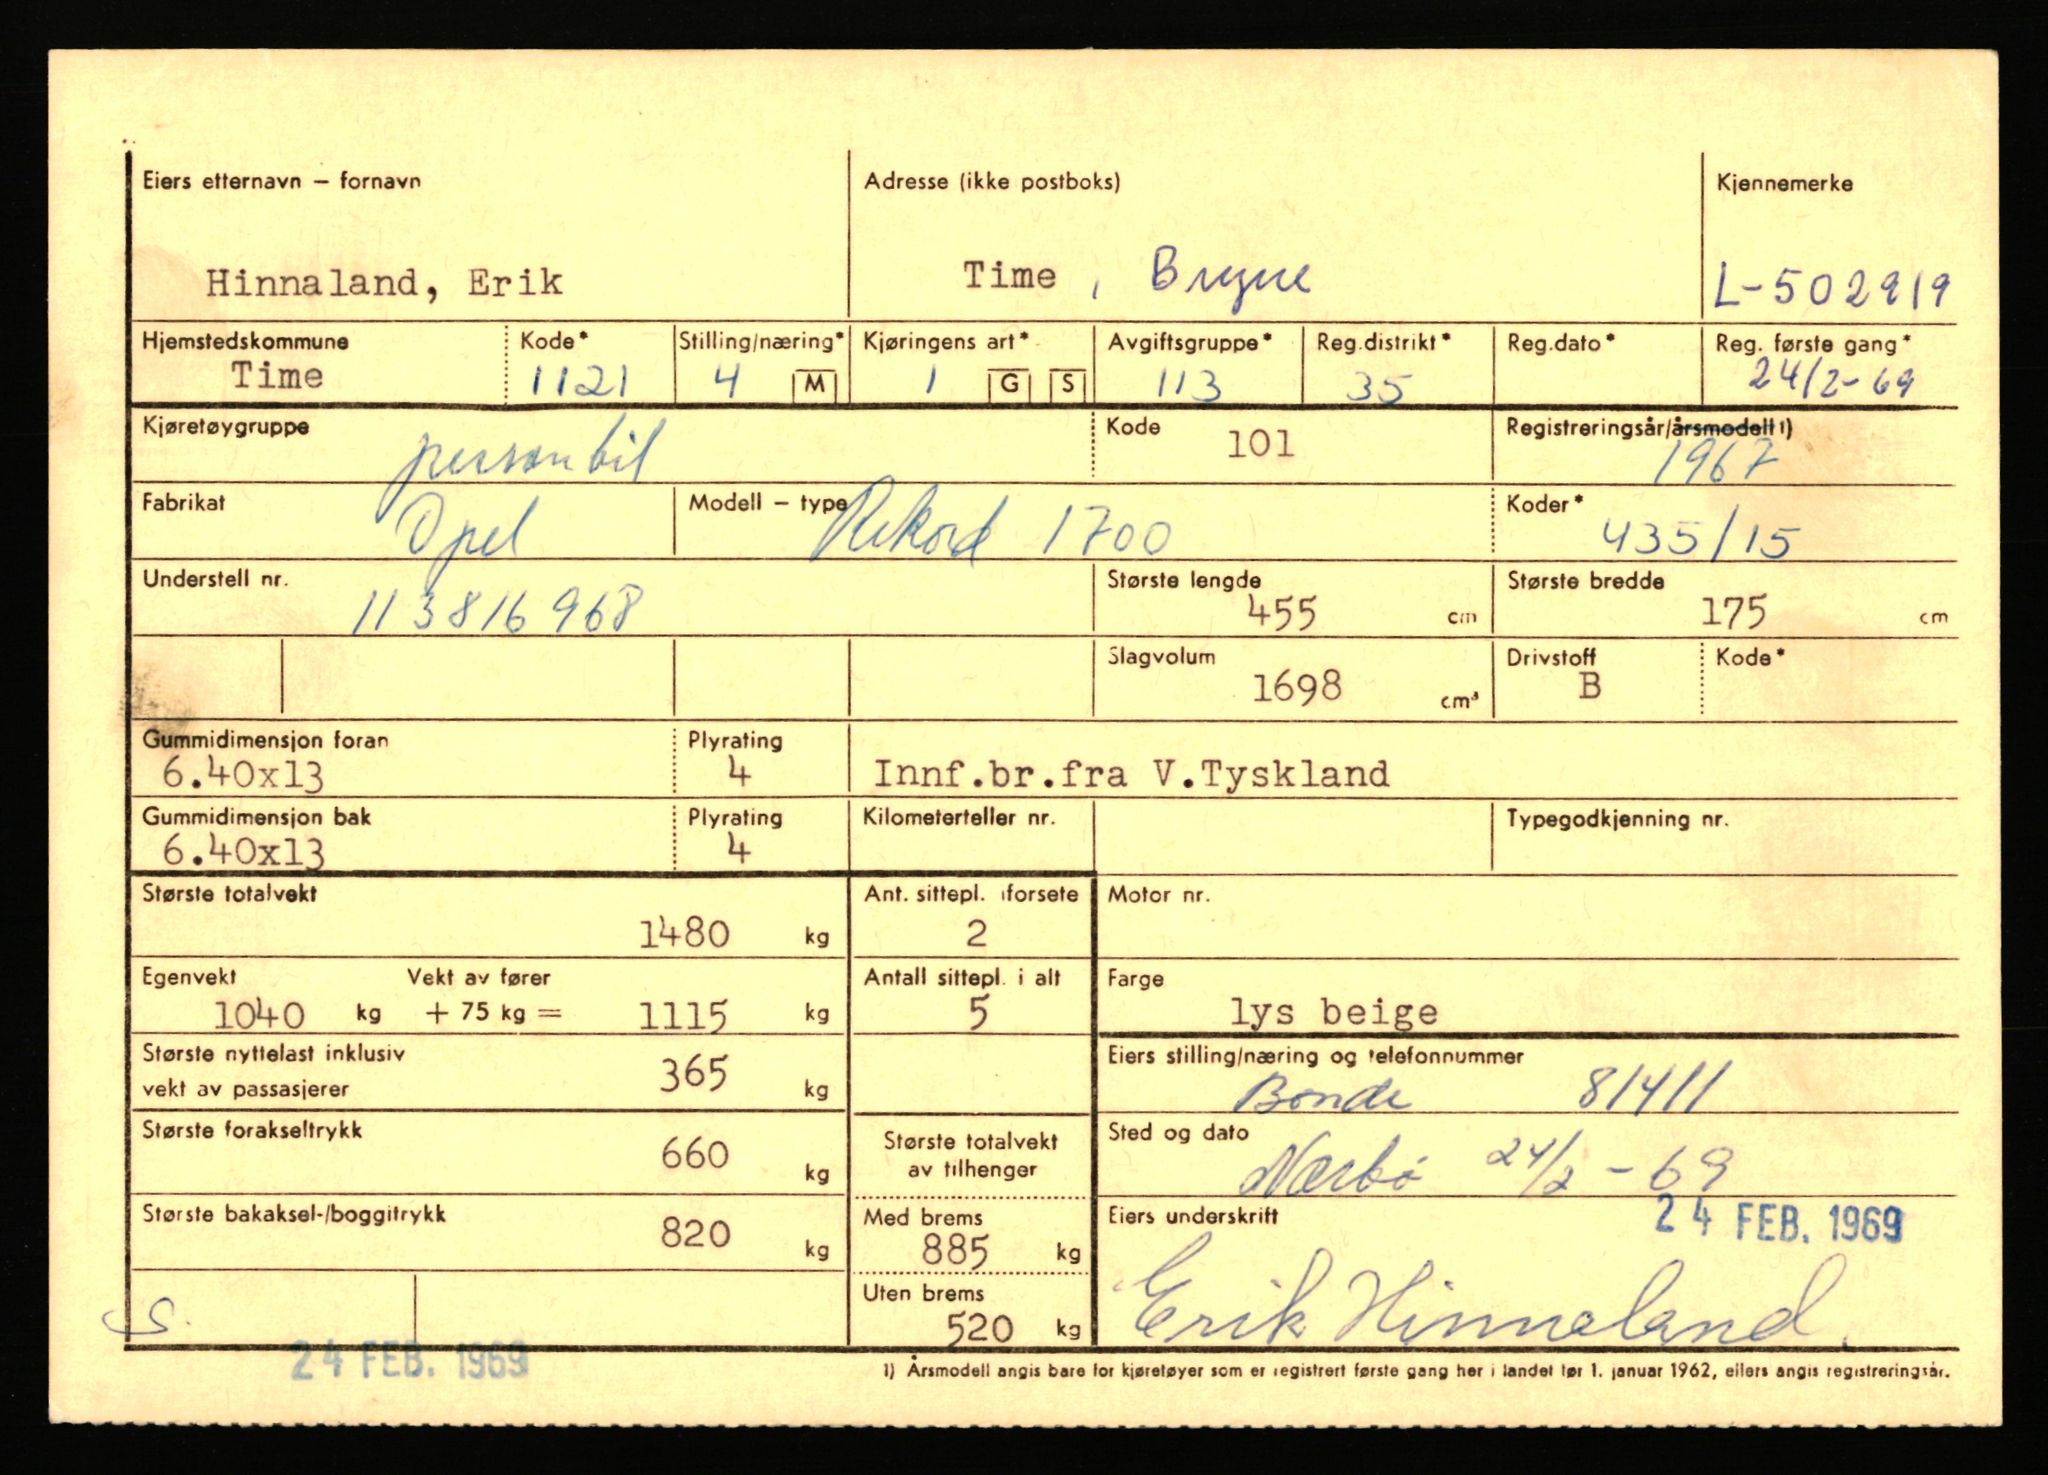 Eiers etternavn – fornavn
Adresse (ikke postboks)
Kjennemerke
Hinnaland, Erik
Time , Bryne
L-502919
Hjemstedskommune
Kode*
Stilling/næring*
Kjøringens art*
Avgiftsgruppe*
Reg.distrikt*
Reg.dato*
Reg. første gang*
Time
1121
4 M
1 G S
113
35
24/2-69
Kjøretøygruppe
personbil
Kode
101
Registreringsår/årsmodell 1)
1967
Fabrikat
Opel
Modell – type
Rekord 1700
Koder*
435/15
Understell nr.
113816968
Største lengde
455 cm
Største bredde
175 cm
Slagvolum
1698 cm³
Drivstoff
B
Kode*
Gummidimensjon foran
6.40x13
Plyrating
4
Innf.br.fra V.Tyskland
Gummidimensjon bak
6.40x13
Plyrating
4
Kilometerteller nr.
Typegodkjenning nr.
Største totalvekt
1480 kg
Ant. sittepl. i forsete
2
Motor nr.
Egenvekt
1040 kg
Vekt av fører
+ 75 kg =
1115 kg
Antall sittepl. i alt
5
Farge
lys beige
Største nyttelast inklusiv
vekt av passasjerer
365 kg
Eiers stilling/næring og telefonnummer
Bonde 81411
Største forakseltrykk
660 kg
Største totalvekt
av tilhenger
Sted og dato
Nærbø 24/2 - 69
Største bakaksel-/boggitrykk
820 kg
Med brems
885 kg
Eiers underskrift
24 FEB. 1969
Erik Hinnaland.
Uten brems
520 kg
S.
24 FEB. 1969
1) Årsmodell angis bare for kjøretøyer som er registrert første gang her i landet før 1. januar 1962, ellers angis registreringsår.